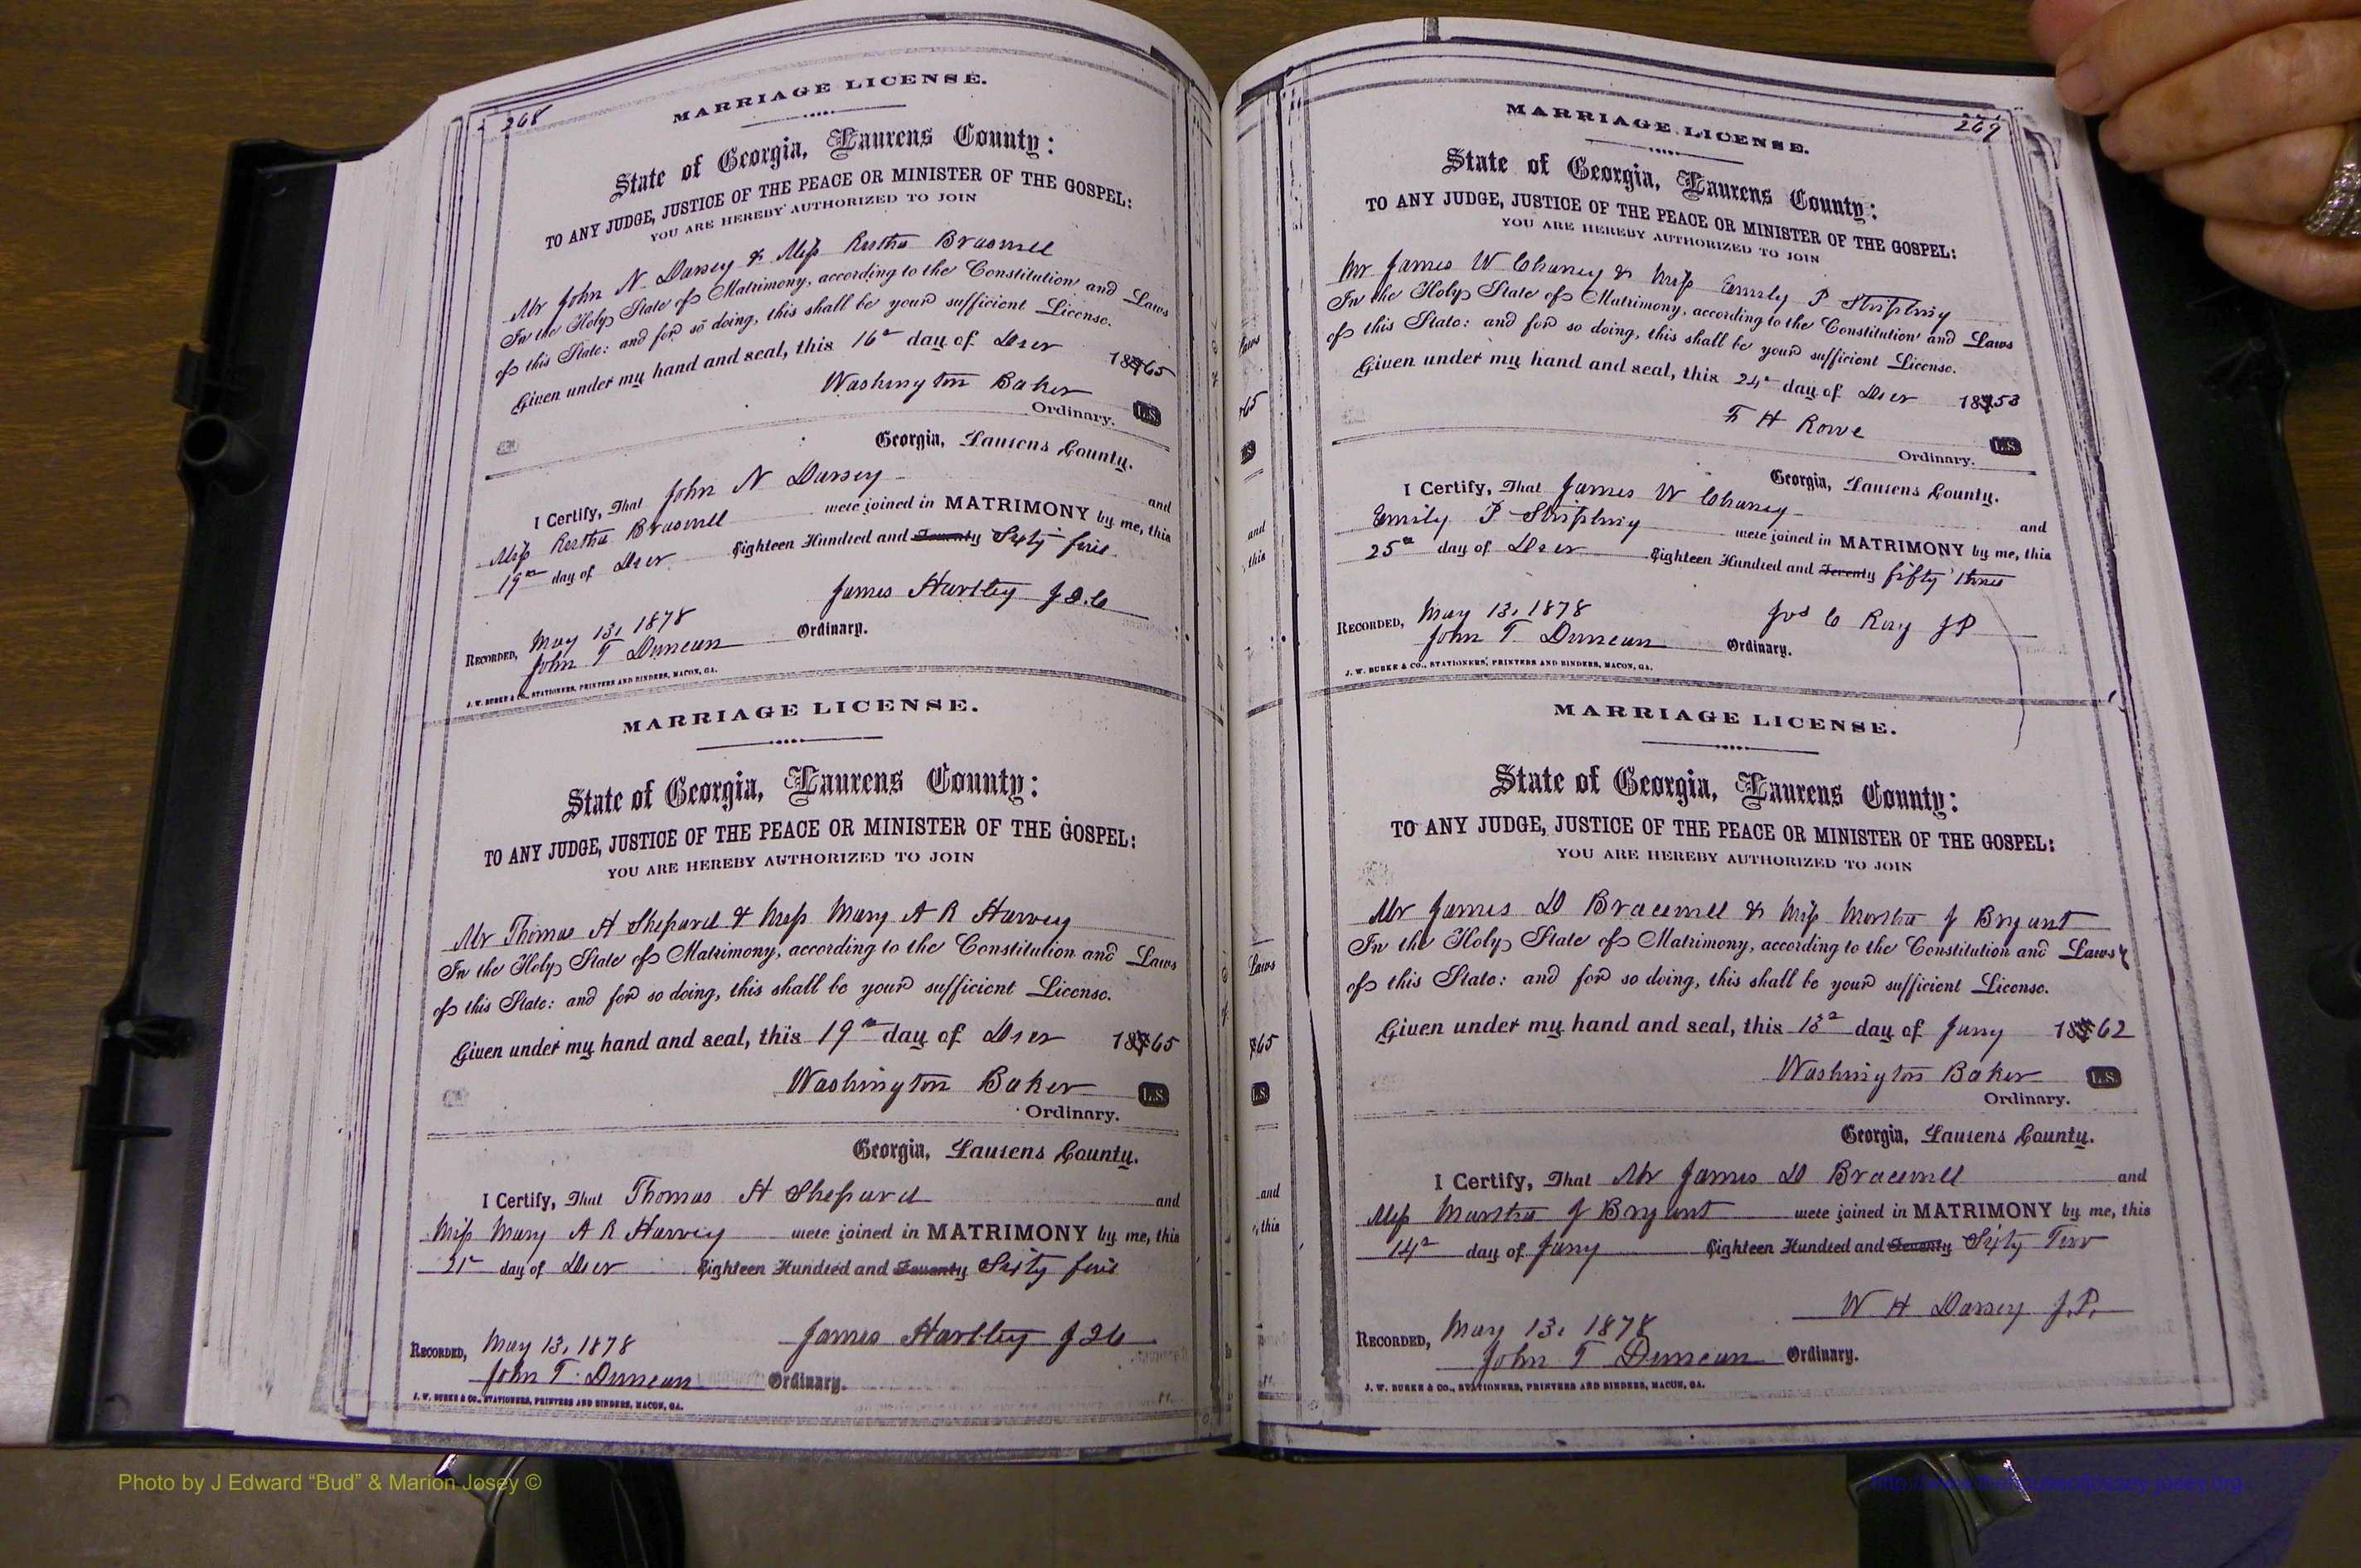 268
MARRIAGE LICENSE.
State of Georgia, Laurens County:
TO ANY JUDGE, JUSTICE OF THE PEACE OR MINISTER OF THE GOSPEL:
YOU ARE HEREBY AUTHORIZED TO JOIN
Mr John N Darsey & Miss Braswell
In the Holy State of Matrimony, according to the Constitution and Laws
of this State: and for so doing, this shall be your sufficient License.
Given under my hand and seal, this 16th day of Decr 1865
Washington Baker
Ordinary. L.S.
Georgia, Laurens County.
I Certify, That John N Darsey and
Miss Braswell were joined in MATRIMONY by me, this
19th day of Decr Eighteen Hundred and Seventy Sixty five
James Hartley J.I.C
RECORDED, May 13, 1878
John T Duncan Ordinary.
J. W. BURKE & CO., STATIONERS, PRINTERS AND BINDERS, MACON, GA.
MARRIAGE LICENSE.
State of Georgia, Laurens County:
TO ANY JUDGE, JUSTICE OF THE PEACE OR MINISTER OF THE GOSPEL:
YOU ARE HEREBY AUTHORIZED TO JOIN
Mr Thomas H Shepard & Miss Mary A R Harvey
In the Holy State of Matrimony, according to the Constitution and Laws
of this State: and for so doing, this shall be your sufficient License.
Given under my hand and seal, this 19th day of Decr 1865
Washington Baker L.S.
Ordinary.
Georgia, Laurens County.
I Certify, That Thomas H Shepard and
Miss Mary A R Harvey were joined in MATRIMONY by me, this
21st day of Decr Eighteen Hundred and Seventy Sixty five
James Hartley J I C
RECORDED, May 13, 1878
John T. Duncan Ordinary.
J. W. BURKE & CO., STATIONERS, PRINTERS AND BINDERS, MACON, GA.
Laws
65
and
this
Laws
65
L.S.
and
this
269
MARRIAGE LICENSE.
State of Georgia, Laurens County:
TO ANY JUDGE, JUSTICE OF THE PEACE OR MINISTER OF THE GOSPEL:
YOU ARE HEREBY AUTHORIZED TO JOIN
Mr James W Chaney & Miss Emily P Stripling
In the Holy State of Matrimony, according to the Constitution and Laws
of this State: and for so doing, this shall be your sufficient License.
Given under my hand and seal, this 24th day of Decr 1853
F H Rowe L.S.
Ordinary.
Georgia, Laurens County.
I Certify, That James W Chaney and
Emily P Stripling were joined in MATRIMONY by me, this
25th day of Decr Eighteen Hundred and Seventy fifty three
Jos C Ray JP
RECORDED, May 13, 1878
John T Duncan Ordinary.
J. W. BURKE & CO., STATIONERS, PRINTERS AND BINDERS, MACON, GA.
MARRIAGE LICENSE.
State of Georgia, Laurens County:
TO ANY JUDGE, JUSTICE OF THE PEACE OR MINISTER OF THE GOSPEL:
YOU ARE HEREBY AUTHORIZED TO JOIN
Mr James D Bracewell & Miss Martha J Bryant
In the Holy State of Matrimony, according to the Constitution and Laws
of this State: and for so doing, this shall be your sufficient License.
Given under my hand and seal, this 13th day of Jany 1862
Washington Baker L.S.
Ordinary.
Georgia, Laurens County.
I Certify, That Mr James D Bracewell and
Miss Martha J Bryant were joined in MATRIMONY by me, this
14th day of Jany Eighteen Hundred and Seventy Sixty Two
W H Darsey J.P.
RECORDED, May 13, 1878
John T Duncan Ordinary.
J. W. BURKE & CO., STATIONERS, PRINTERS AND BINDERS, MACON, GA.
Photo by J Edward “Bud” & Marion Josey ©
http://www.thehouseofjossey-josey.org